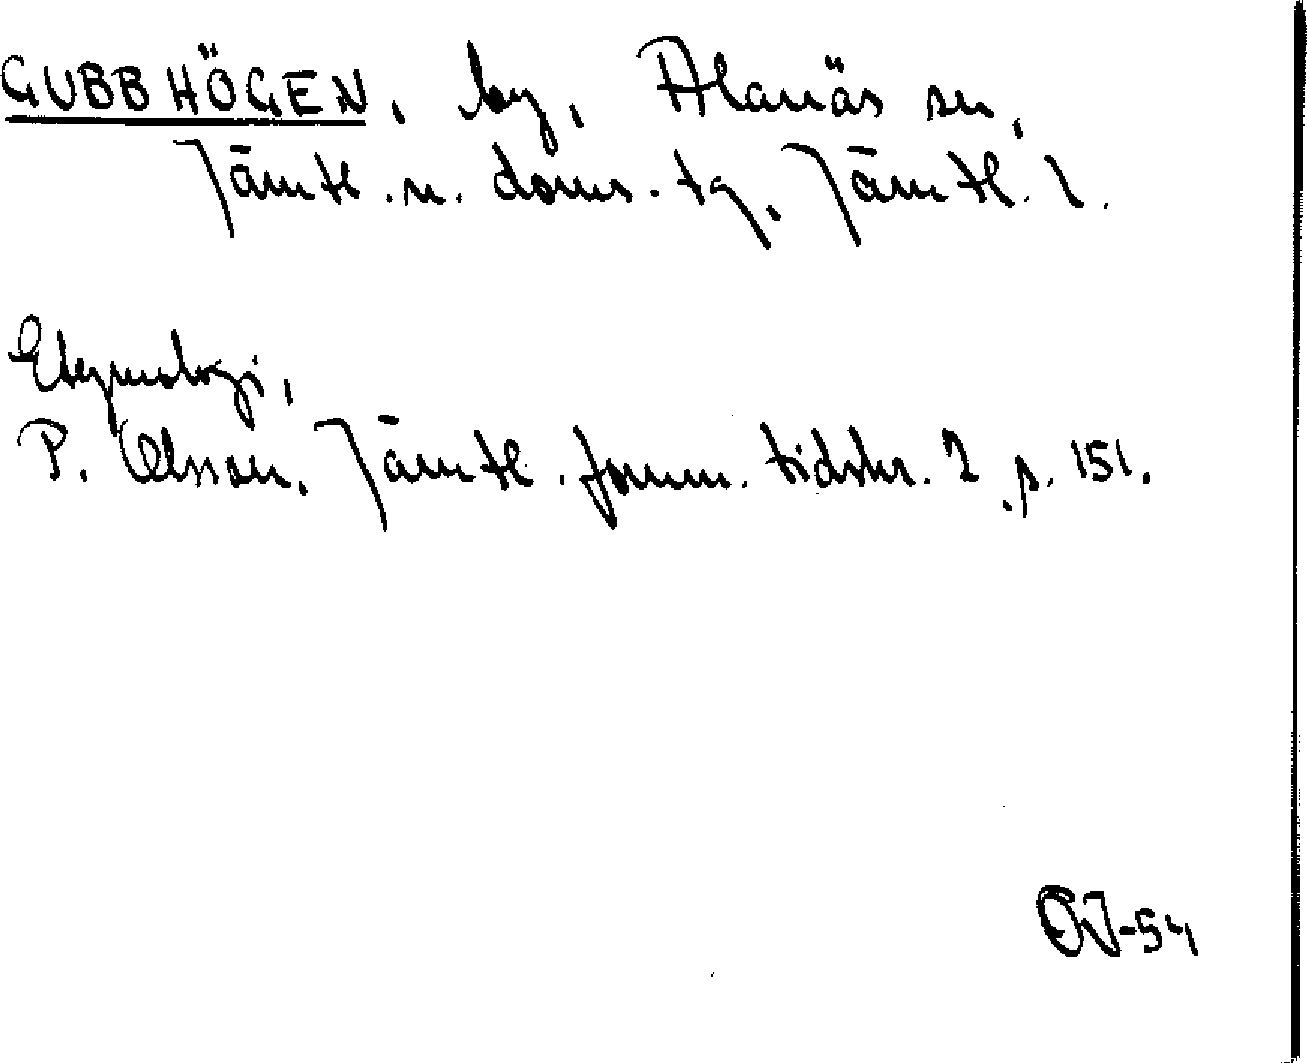 GUBBHÖGEN, by, Alanäs sn,
Jämtl. n. doms. tg, Jämtl. l.
Etymologi,
P. Olsson, Jämtl. fornm. tidskr. 2, s. 151.
OJ-54